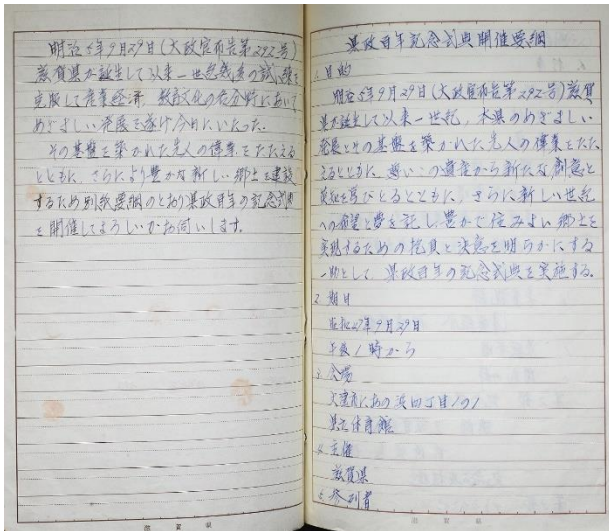 明治5年9月29日(太政官布告第292号)
滋賀県が誕生して以来一世紀幾多の試練を
克服して産業経済、教育文化の各分野において
めざましい発展を遂げ今日にいたった。
その基盤を築かれた先人の偉業をたたえる
とともに、さらにより豊かな新しい郷土を建設
するため別紙要綱のとおり県政百年の記念式典
を開催してよろしいかお伺いします。
県政百年記念式典開催要綱
1. 目的
明治5年9月29日(太政官布告第292号)滋賀
県が誕生して以来一世紀、本県のめざましい
発展とその基盤を築かれた先人の偉業をたた
えるとともに、尊いこの遺産から新たな創意と
英知を学びとるとともに、さらに新しい世紀
への希望と夢を託し豊かで住みよい郷土を
実現するための抱負と決意を明らかにする
一助として県政百年の記念式典を実施する。
2. 期日
昭和47年9月29日
午後1時から
3. 会場
大津市におの浜四丁目1の1
県立体育館
4. 主催
滋賀県
5. 参列者
滋賀県
滋賀県